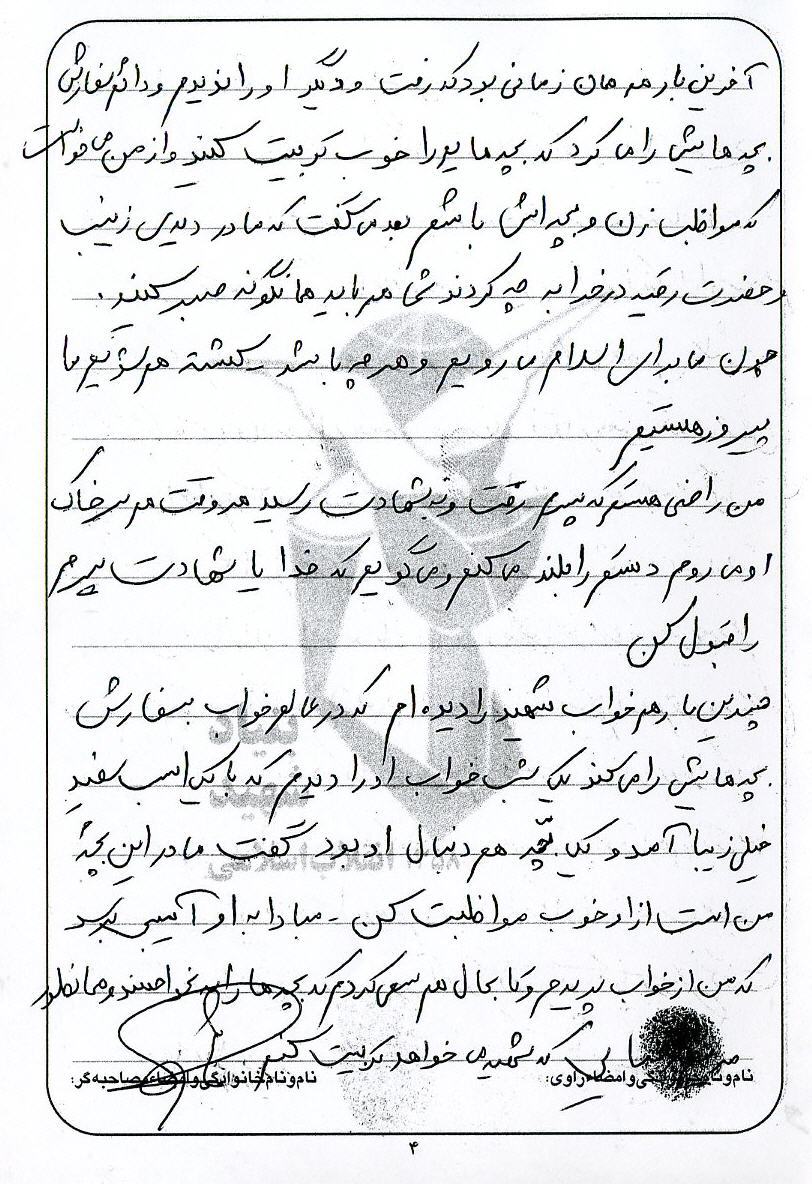 آخرین بار هم همان زمانی بود که رفت و دیگر او را ندیدم و دائم سفارش
بچه هایش را می کرد که بچه هایم را خوب تربیت کنید و از من می خواست
که مواظب زن و بچه اش باشم بعد می گفت که مادر دیدی زینب
و حضرت رقیه در خرابه چه کردند شما هم باید همانگونه صبر کنید.
چون ما برای اسلام می رویم و هر چه باشد - کشته هم شویم ما
پیروز هستیم
من راضی هستم که پسرم رفت و به شهادت رسید هر وقت هم سر خاک
او می روم دستم را بلند می کنم و می گویم که خدا یا شهادت پسرم
را قبول کن
چندین بار هم خواب شهید را دیده ام که در عالم خواب سفارش
بچه هایش را می کند یک شب خواب او را دیدم که با یک اسب سفید
خیلی زیبا آمد و یک بچه هم دنبال او بود گفت مادر این بچه
من است از او خوب مواظبت کن - مبادا به او آسیبی برسد
که من از خواب پریدم و تا بحال هم سعی کردم که بچه ها را و همانطور
که شهید می خواهد تربیت کنم
نام و نام خانوادگی و امضاء راوی: نام و نام خانوادگی و امضاء مصاحبه گر:
بنیاد
شهید
انقلاب اسلامی
۴